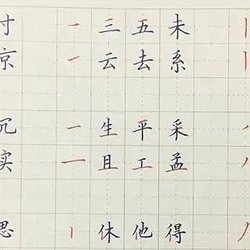 一 三 五 未
京 一 云 去 系
一 生 平 采
实 一 且 工 孟
思 丨 休 他 得